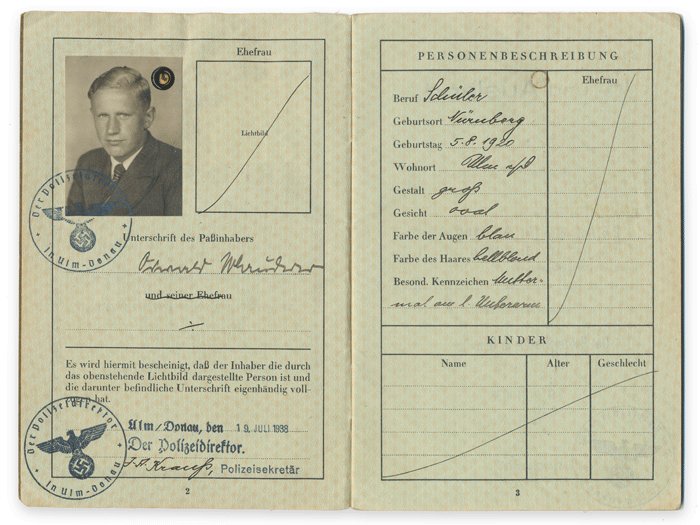 Ehefrau
Lichtbild
Unterschrift des Paßinhabers
und seiner Ehefrau
Es wird hiermit bescheinigt, daß der Inhaber die durch
das obenstehende Lichtbild dargestellte Person ist und
die darunter befindliche Unterschrift eigenhändig voll-
hat.
Der Polizeidirektor
in Ulm-Donau
Ulm/Donau, den 19. JULI 1938
Der Polizeidirektor.
Krauß, Polizeisekretär
Der Polizeidirektor
in Ulm-Donau
2
PERSONENBESCHREIBUNG
Ehefrau
Beruf Schüler
Geburtsort Nürnberg
Geburtstag 5.8.1920
Wohnort Ulm a/d
Gestalt groß
Gesicht oval
Farbe der Augen blau
Farbe des Haares hellblond
Besond. Kennzeichen Mutter-
mal am l. Unterarm
KINDER
Name Alter Geschlecht
3